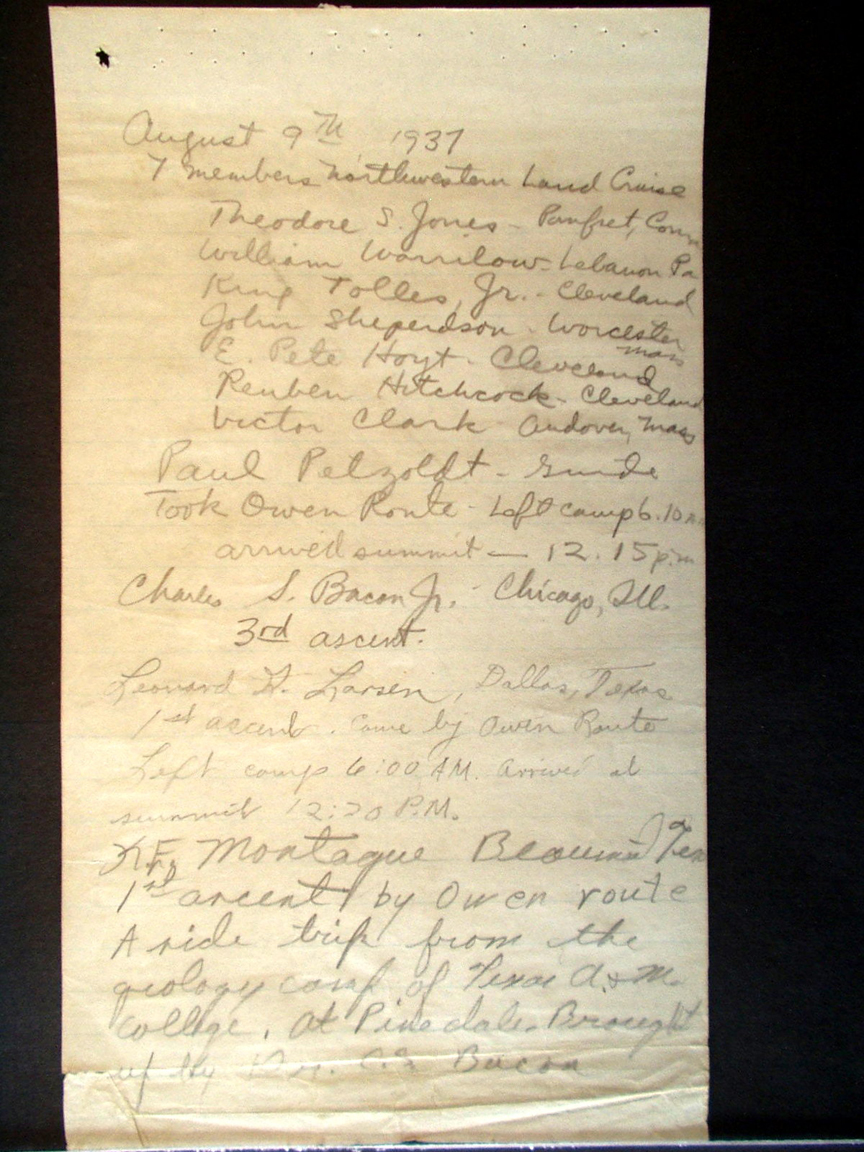 August 9TH 1937
7 members Northwestern Land Cruise
Theodore S. Jones - Pomfret, Conn
William Warrilow - Lebanon Pa
King Tolles, Jr. - Cleveland
John Sheperdson - Worcester
Mass
E. Pete Hoyt - Cleveland
Reuben Hitchcock - Cleveland
Victor Clark Andover, Mass
Paul Petzoldt - Guide
Took Owen Route - Left camp 6.10
arrived summit — 12.15 p.m
Charles S. Bacon Jr. - Chicago, Ill.
3rd ascent.
Leonard H. Larsen, Dallas, Texas
1st ascent. Came by Owen Route
Left camp 6:00 A.M. Arrived at
summit 12:20 P.M.
Montague Beaumont Tex
1st ascent by Owen route
A side trip from the
geology camp of Texas A. & M.
College, at Pinedale. Brought
up by C.S. Bacon